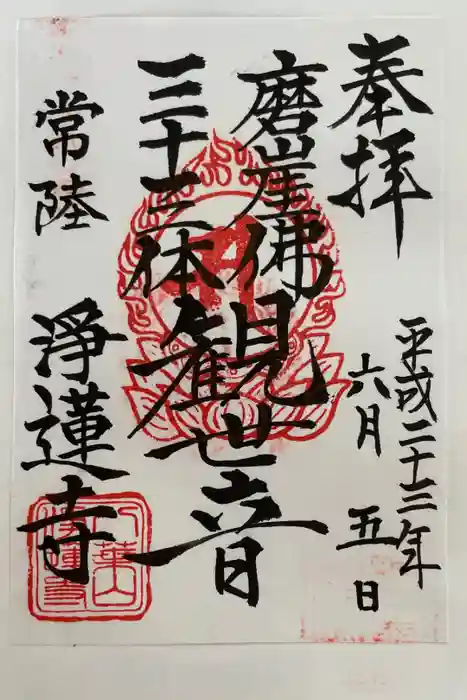 奉拝
平成二十三年
六月 五日
磨崖佛
三十三体
観世音
常陸 淨蓮寺